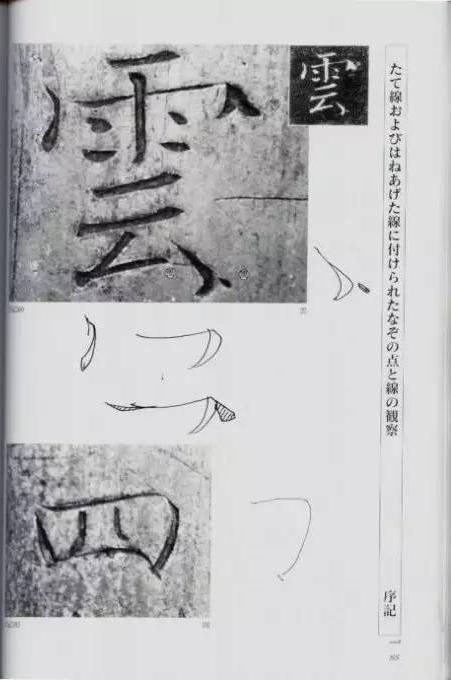 たて線およびはねあげた線に付けられたなぞの点と線の観察
序記
一
雲
雲
四